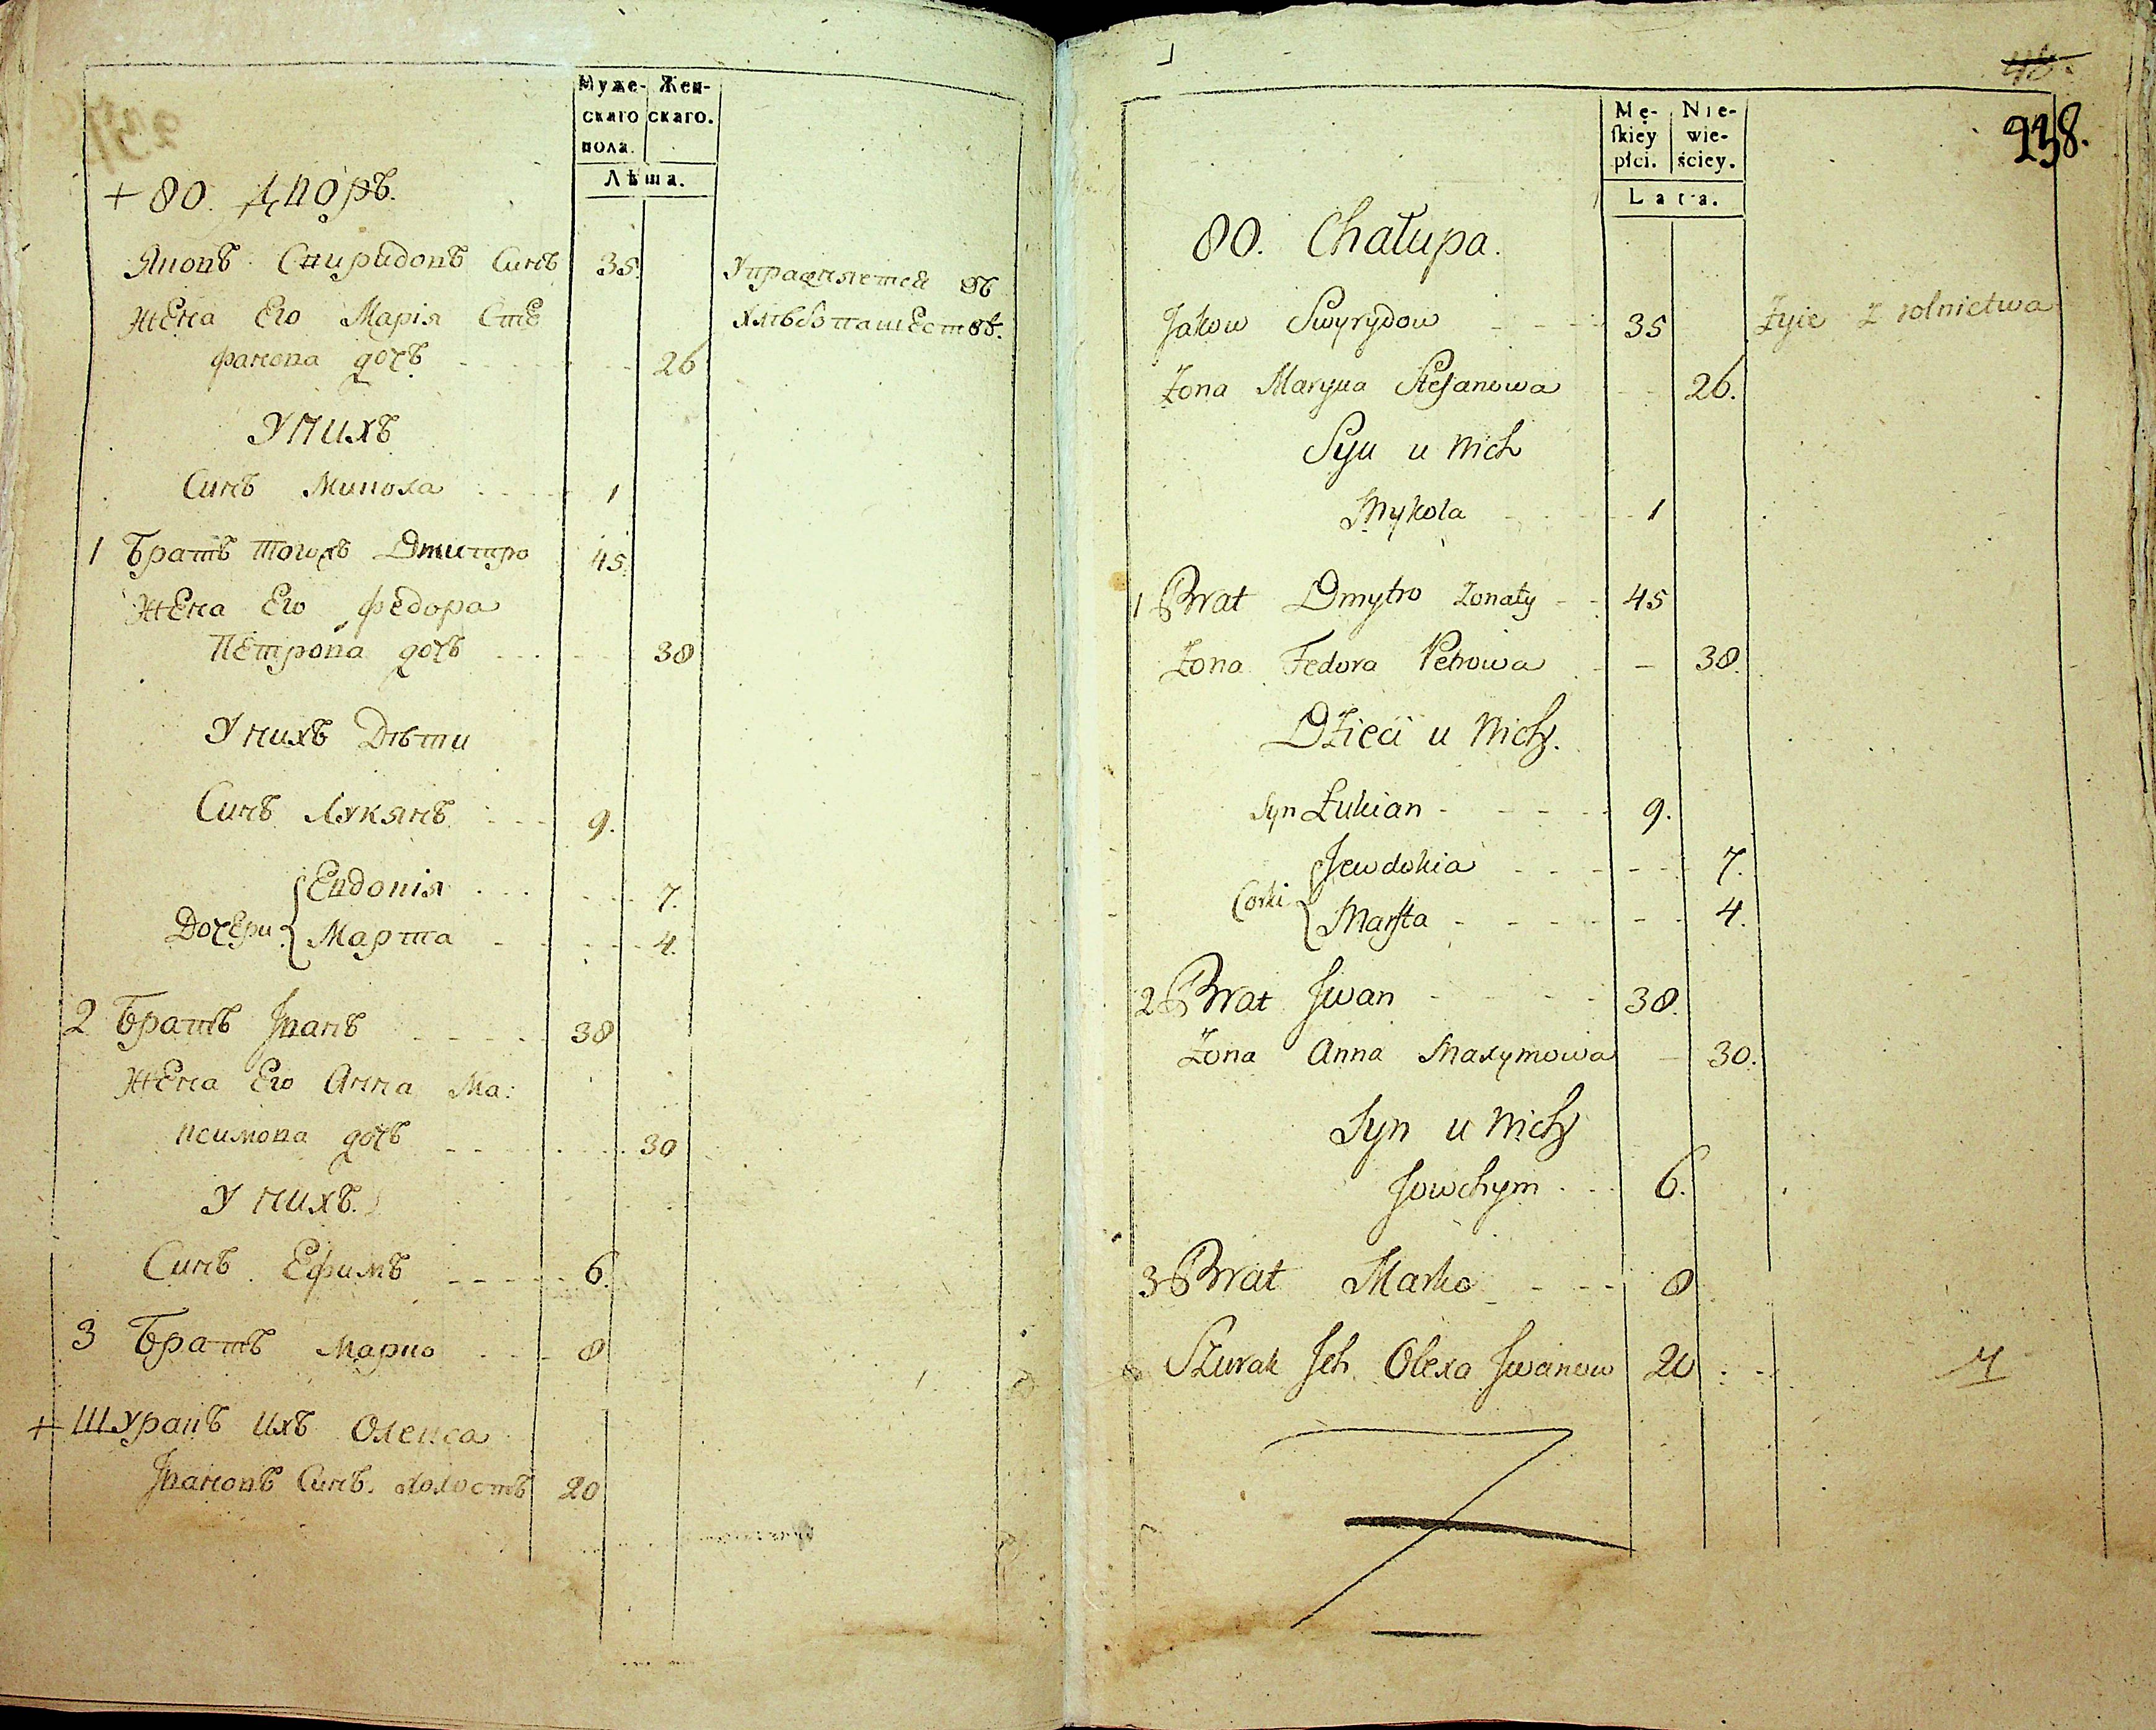 Муже- Жен-
скаго скаго.
пола.
Лѣта.
+ 80. Дворъ.
Яковъ Спиридоновъ Синъ 35. Упражняется въ
Жена Его Марія Сте хлѣбопашествѣ.
фанова дочъ 26
У нихъ
Синъ Микола 1
1 Братъ тогожъ Дмитро 45.
Жена Его Федора
Петрова дочъ 38
У нихъ Дѣти
Синъ Лукянъ 9.
Евдокія 7.
Дочери Марта 4.
2 Братъ Іванъ 38
Жена Его Анна Ма:
ксимова дочъ 30
У нихъ.
Синъ Ефимъ 6.
3 Братъ Марко 8
+ Шуракъ ихъ Олекса
Івановъ Синъ. холостъ 20
238.
Mę- Nie-
skiey wie-
płci. ściey.
Lata.
80. Chałupa.
Jakow Swyrydow 35 Żyie z rolnictwa
Żona Maryna Stefanowa 26.
Syn u Nich
Mykola 1
1 Brat Dmytro żonaty 45
Żona Fedora Petrowa 38.
Dzieci u Nich.
Syn Łukian 9.
Jewdokia 7.
Corki Marta 4.
2 Brat Jwan 38.
Żona Anna Maxymowa 30.
Syn u Nich
Jowchym 6.
3 Brat Marko 8
Szurak Jch Olexa Jwanow 20